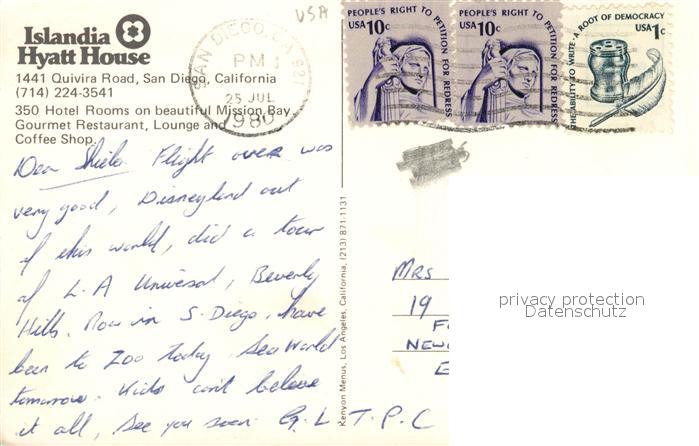 USA
Islandia
Hyatt House
1441 Quivira Road, San Diego, California
(714) 224-3541
350 Hotel Rooms on beautiful Mission Bay
Gourmet Restaurant, Lounge and
Coffee Shop.
SAN DIEGO, CA 921
PM
25 JUL
1980
PEOPLE'S RIGHT TO PETITION FOR REDRESS
USA 10c
PEOPLE'S RIGHT TO PETITION FOR REDRESS
USA 10c
THE ABILITY TO WRITE · A ROOT OF DEMOCRACY
USA 1c
Dear Shiela Flight over was
very good, Disneyland out
of this world, did a tour
of L.A Universal, Beverly
Hills. Now in S. Diego, have
been to Zoo today. Sea World
tomorrow. Kids can't believe
it all, see you soon. G. L. T. P. C
Kenyon Menus, Los Angeles, California, (213) 871-1131
MRS
19
F
NEW
E
privacy protection
Datenschutz